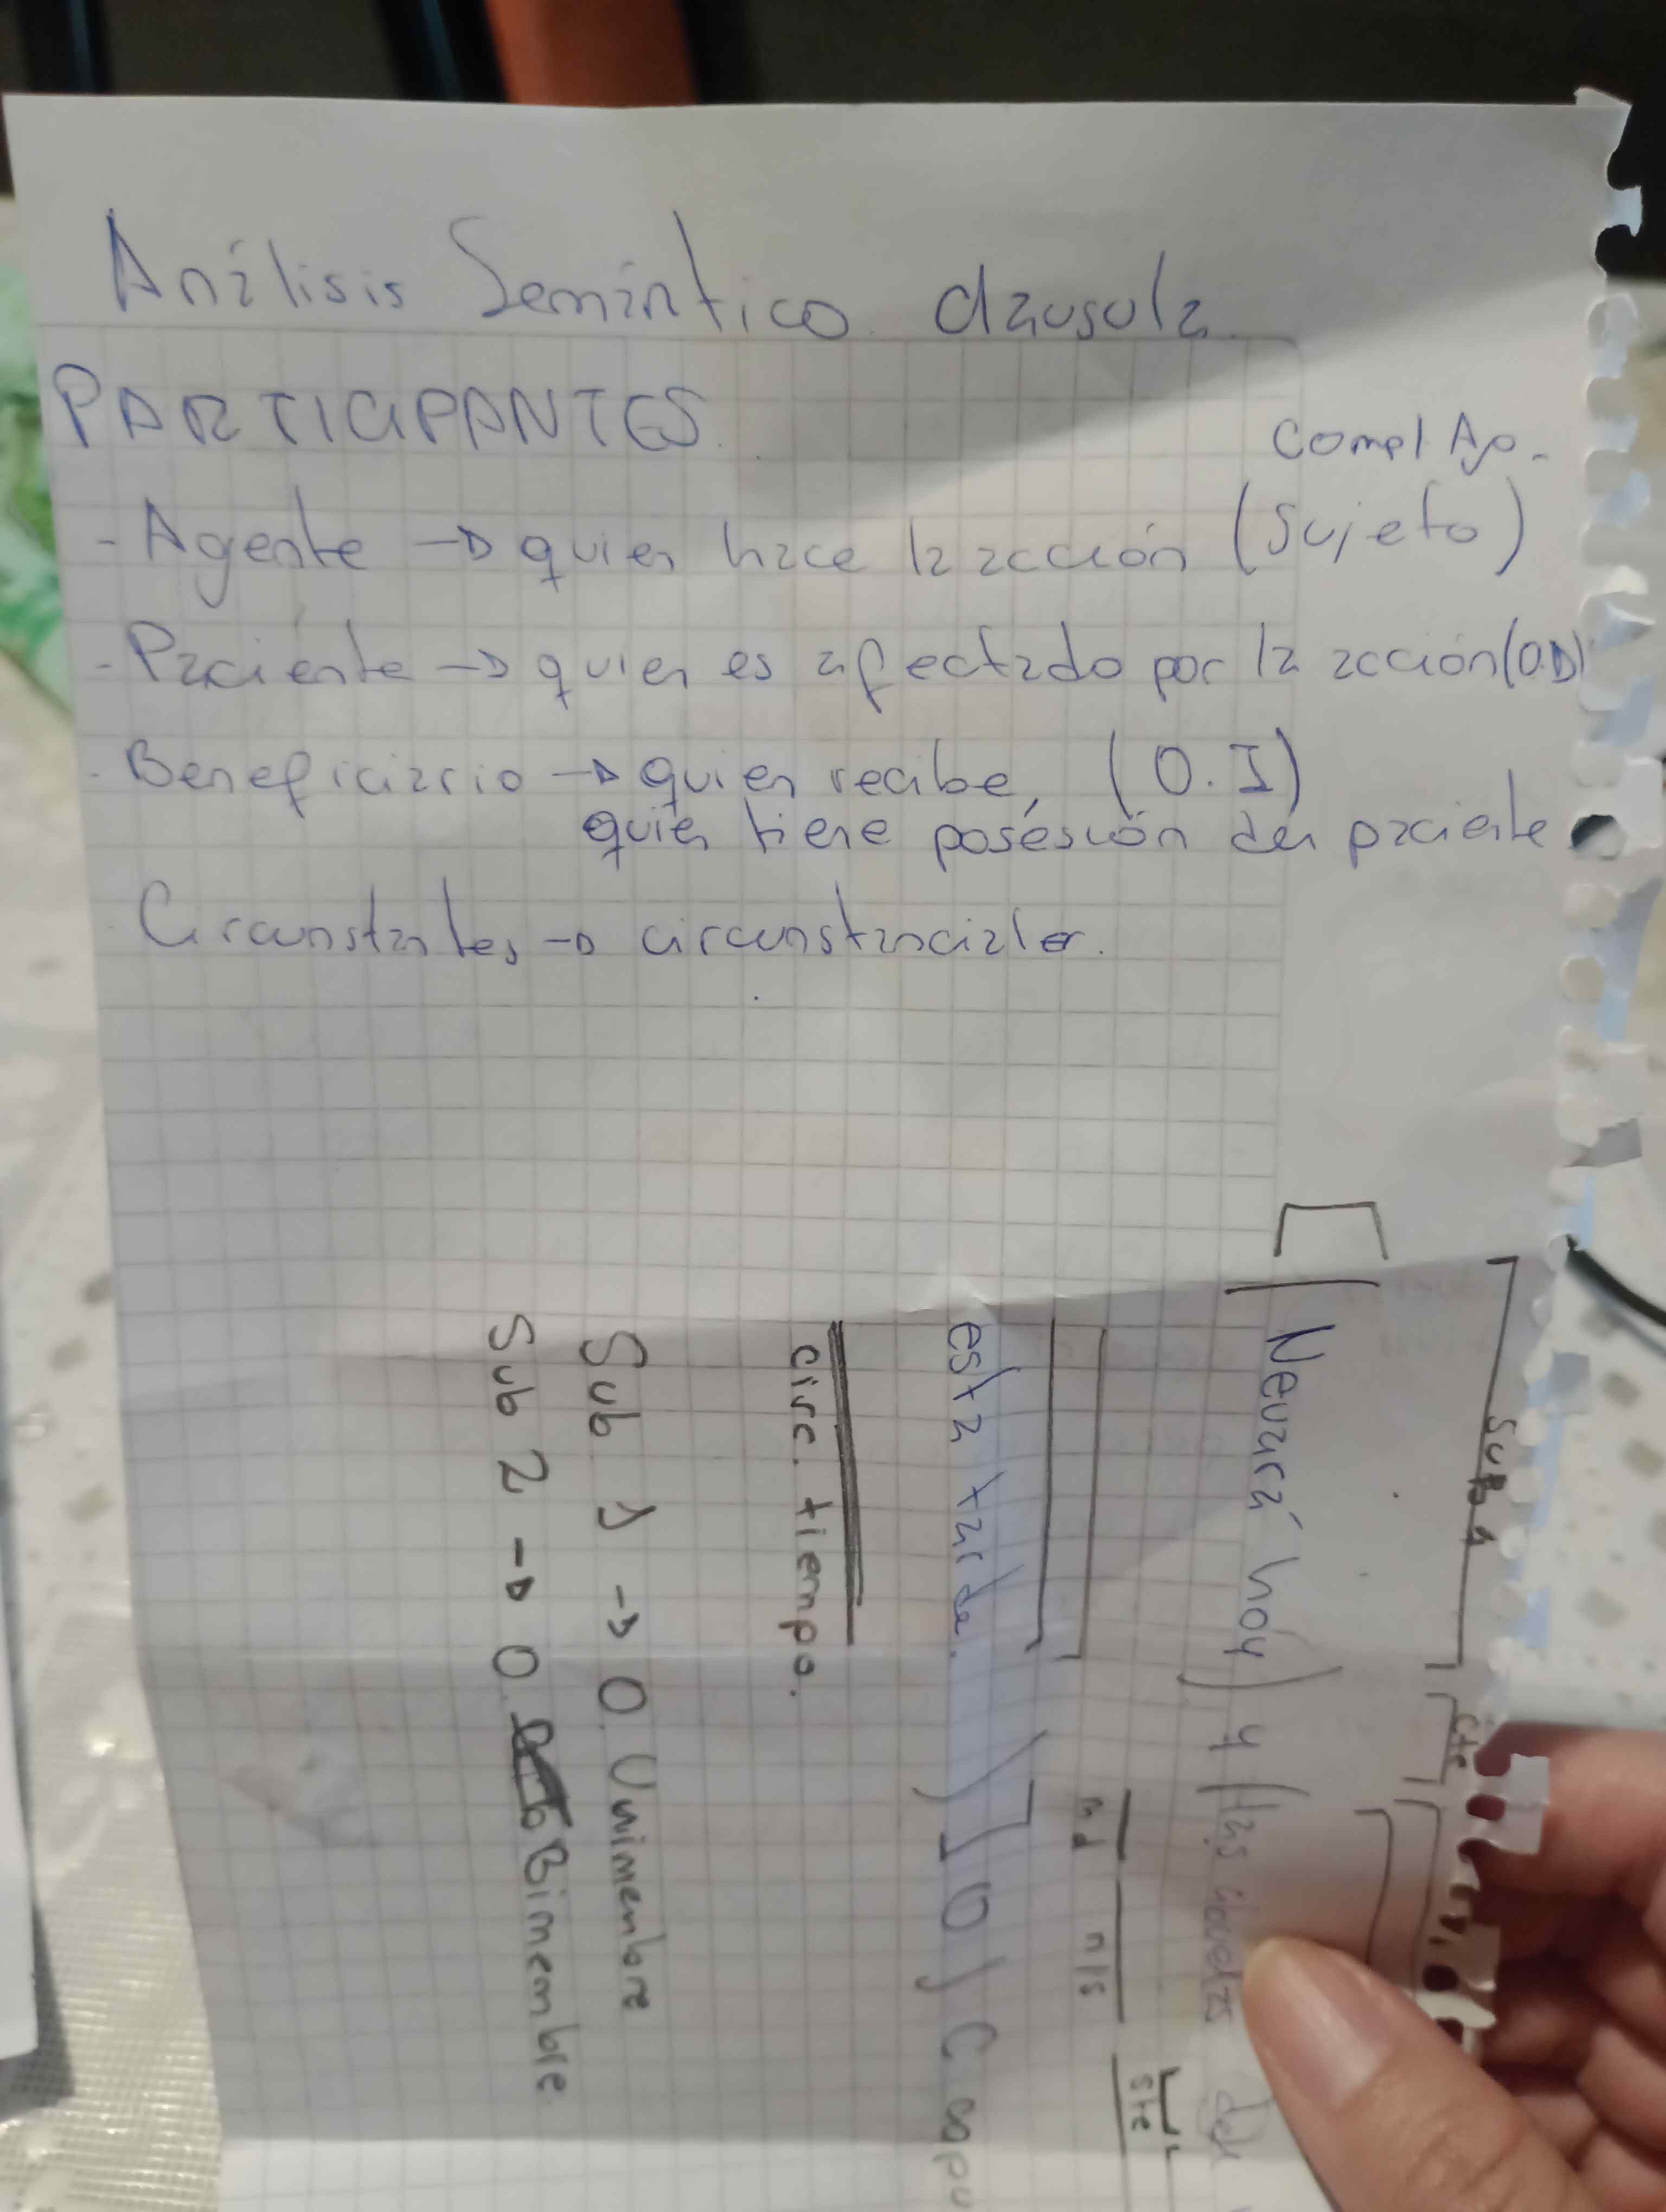 Análisis Semántico cláusula
PARTICIPANTES
Compl Ag.
- Agente → quien hace la acción (Sujeto)
- Paciente → quien es afectado por la acción (O.D)
- Beneficiario → quien recibe, (O.I)
quien tiene posesión del paciente
Circunstantes → circunstanciales.
Sub 1
Cte
Nevará hoy) y (las
md n/s
Ste
esta tarde.)] O) C.
circ. tiempo.
Sub 1 → O. Unimembre
Sub 2 → O. Bimembre